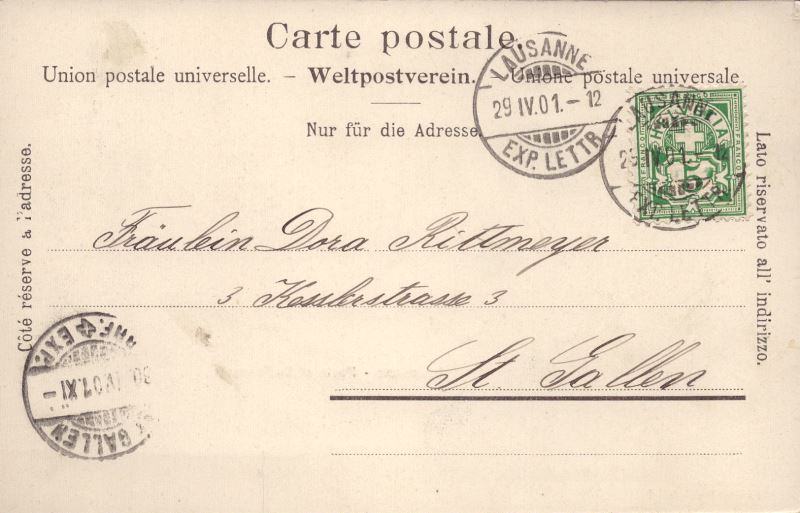 Carte postale.
Union postale universelle. – Weltpostverein. – Unione postale universale
Nur für die Adresse.
LAUSANNE
29 IV.01.–12
EXP. LETTR.
LAUSANNE
HELVETIA
FRANCO
5
Côté réservé à l'adresse.
Lato riservato all' indirizzo.
Fräulein Dora Rittmeyer
3 Kesslerstrasse 3
St. Gallen
EXP.
30 IV 01.XI–
GALLEN